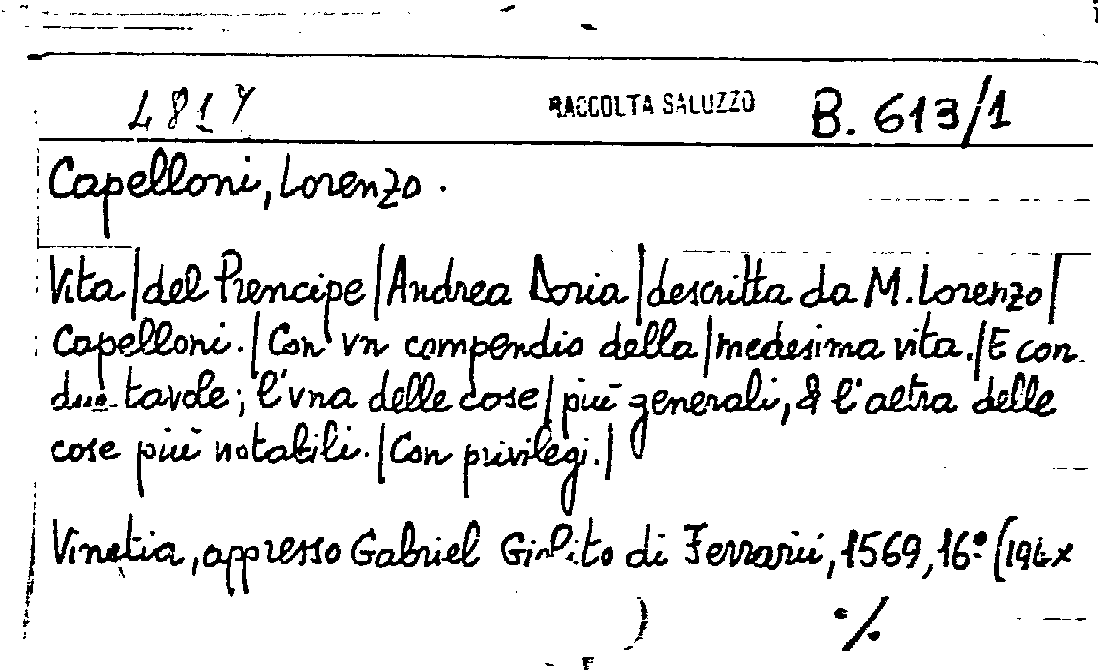 4817 RACCOLTA SALUZZO B. 613/1
Capelloni, Lorenzo.
Vita|del Prencipe|Andrea Doria|descritta da M. Lorenzo|
Capelloni.|Con vn compendio della|medesima vita.|E con
due tavole; l'vna delle cose|più generali, & l'altra delle
cose più notabili.|Con privilegi.|
Vinetia, appresso Gabriel Giolito di Ferrarii, 1569, 16º (194x
) ./.